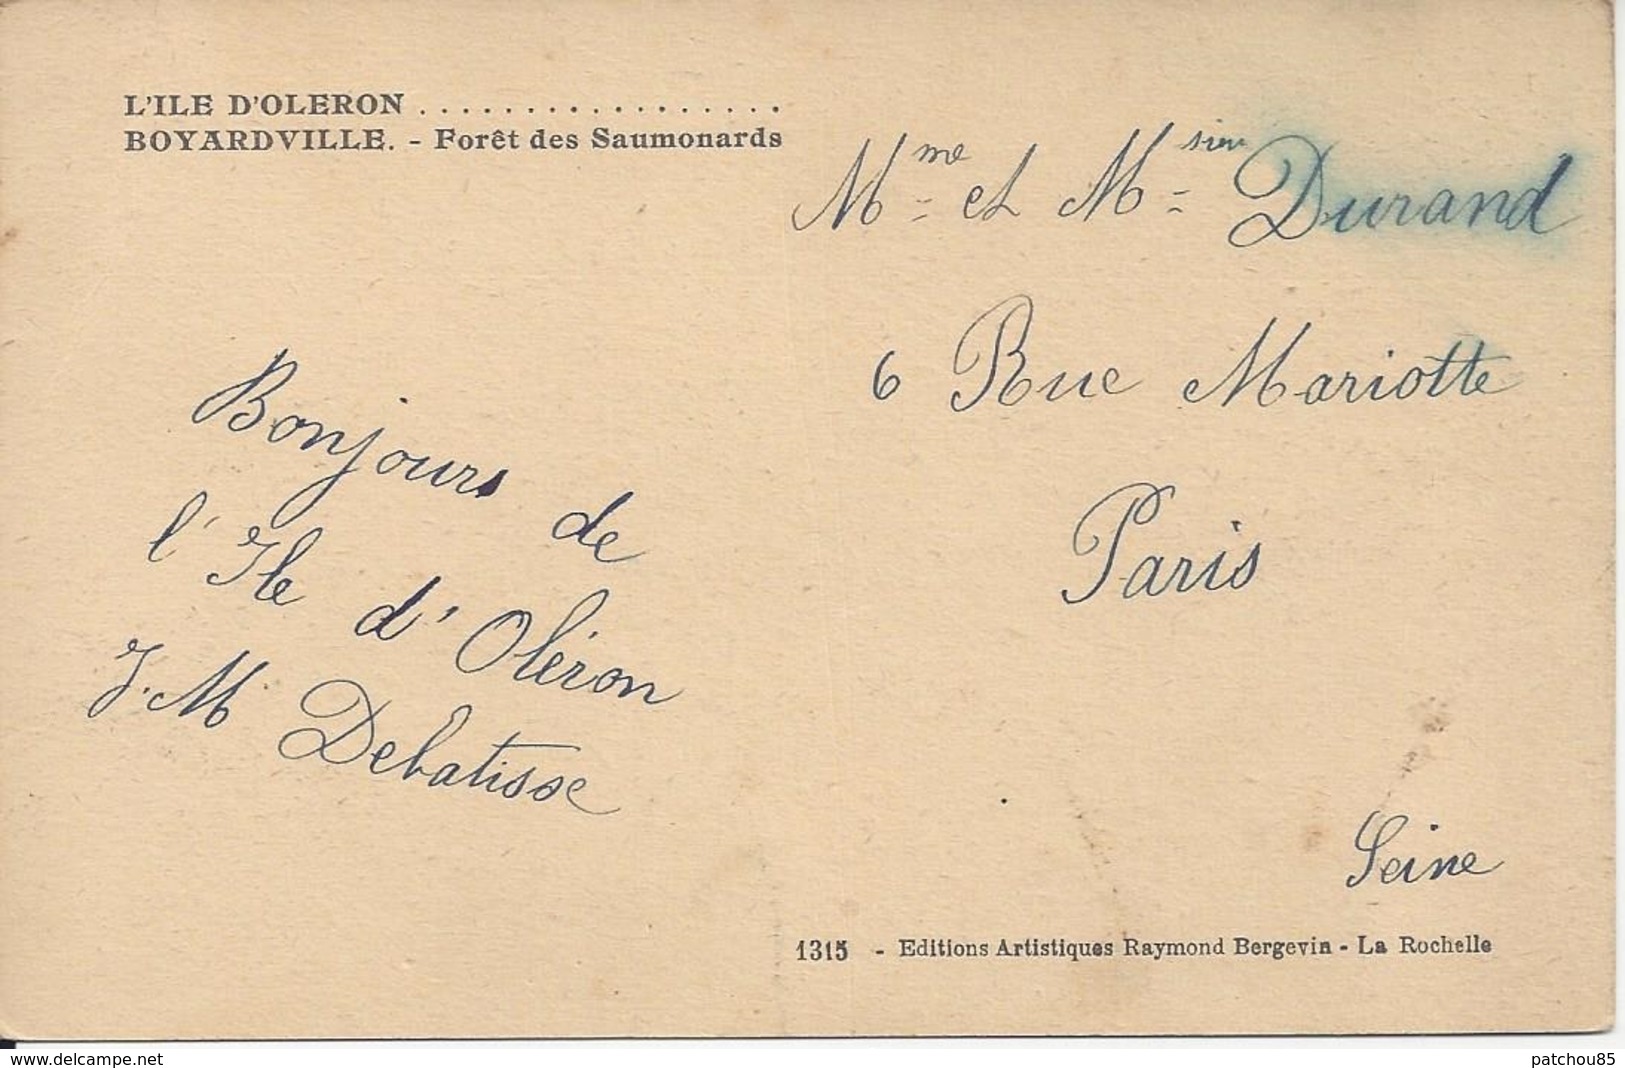 L'ILE D'OLERON . . . . . . . . . . . . . . . . . .
BOYARDVILLE. - Forêt des Saumonards
Bonjours de
l'Ile d'Oléron
J.M Debatisse
Mme et Msieu Durand
6 Rue Mariotte
Paris
Seine
1315 - Editions Artistiques Raymond Bergevin - La Rochelle
www.delcampe.net
patchou85